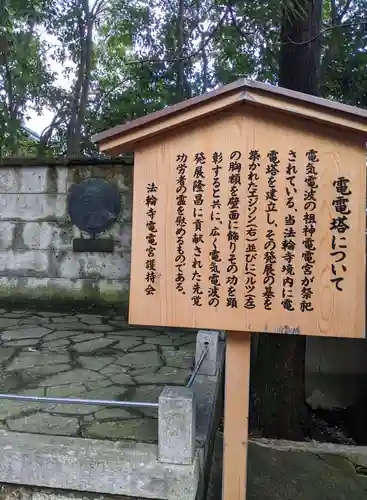 電電塔について
電気電波の祖神電電宮が祭祀
されている。当法輪寺境内に電
電塔を建立し、その発展の基を
築かれたエジソン(右)並びにヘルツ(左)
の胸額を壁面に飾りその功を顕
彰すると共に、広く電気電波の
発展隆昌に貢献された先覚
功労者の霊を慰めるものである。
法輪寺電電宮護持会